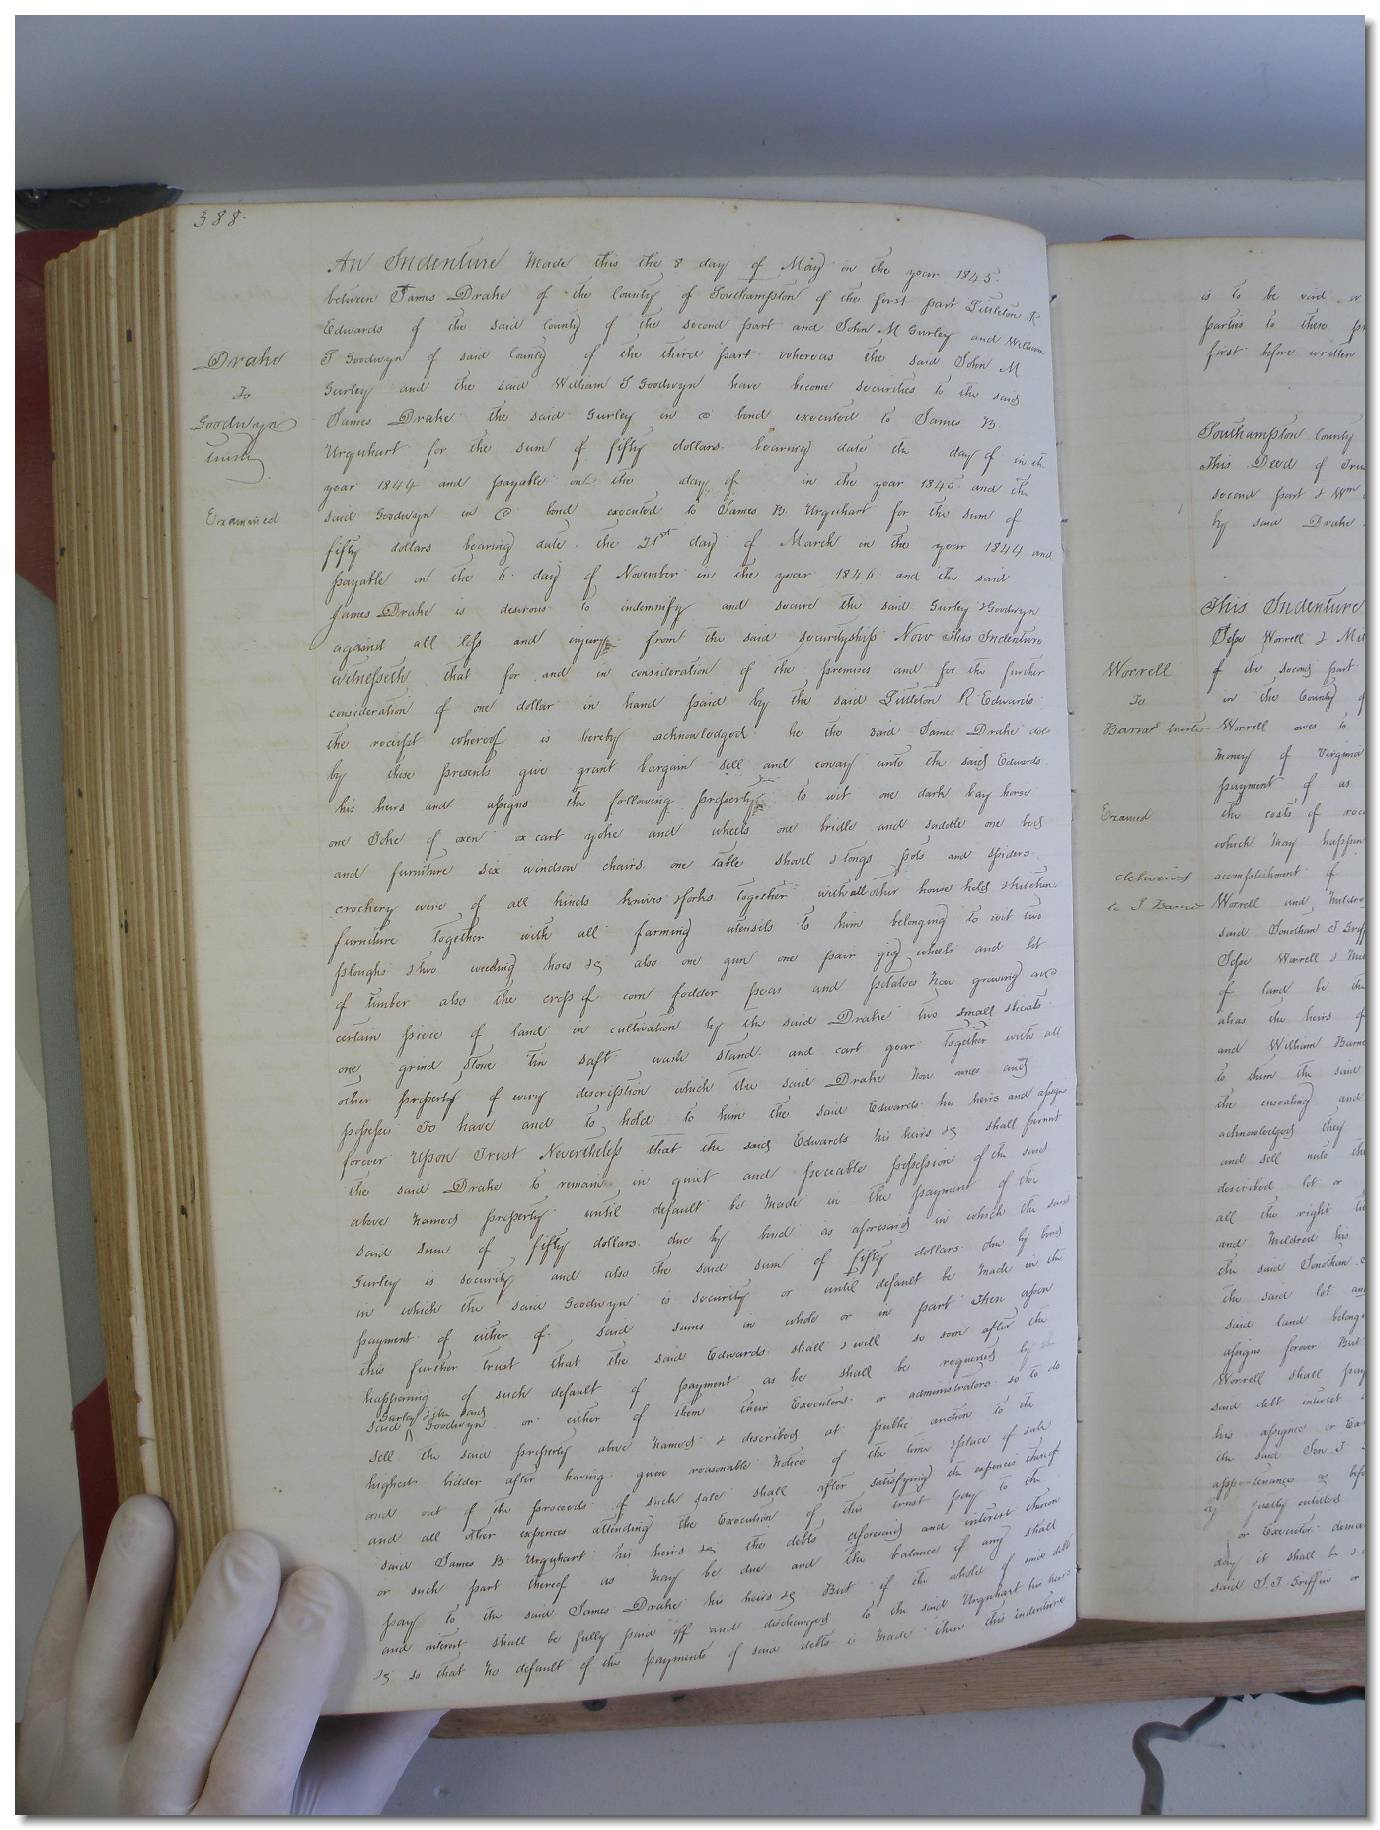 388.
An Indenture Made this the 8 day of May in the year 1845.
between James Drake of the County of Southampton of the first part Littleton R
Edwards of the said County of the second part and John M Gurley and William
Drake
To
Goodwyn
Trust
Examined
T Goodwyn of said County of the third part whereas the said John M
Gurley and the said William T Goodwyn have become securities to the said
James Drake the said Gurley in a bond executed to James B.
Urquhart for the sum of fifty dollars bearing date the day of in the
year 1844 and payable on the day of in the year 1845 and the
said Goodwyn in a bond executed to James B Urquhart for the sum of
fifty dollars bearing date the 21st day of March in the year 1844 and
payable on the day of November in the year and the said
James Drake is desirous to indemnify and secure the said Gurley & Goodwyn
against all loss and injury from the said securityship Now This Indenture
witnesseth that for and in consideration of the premises and for the further
consideration of one dollar in hand paid by the said Littleton R Edwards
the receipt whereof is hereby acknowledged he the said James Drake does
by these presents give grant bargain sell and convey unto the said Edwards
his heirs and assigns the following property to wit one dark bay horse
one Yoke of oxen ox cart yoke and wheels one bridle and saddle one bed
and furniture six windsor chairs one table shovel & tongs pots and spiders
crockery ware of all kinds knives & forks together with all other house hold & kitchen
furniture together with all farming utensils to him belonging to wit two
ploughs & two weeding hoes &c also one gun one pair gig wheels and lot
of timber also the crop of corn fodder peas and potatoes now growing on a
certain piece of land in cultivation by the said Drake two small shoats
one grind stone tin saft wash stand and cart gear together with all
other property of every description which the said Drake now owns and
possesses To have and to hold to him the said Edwards his heirs and assigns
forever Upon Trust Nevertheless that the said Edwards his heirs &c shall permit
the said Drake to remain in quiet and peaceable possession of the said
above named property until default be made in the payment of the
said sum of fifty dollars due by bond as aforesaid in which the said
Gurley is security and also the said sum of fifty dollars due by bond
in which the said Goodwyn is security or until default be made in the
payment of either of said sums in whole or in part Then upon
this further trust that the said Edwards shall & will so soon after the
happening of such default of payment as he shall be requested by the
Gurley & the said
said Goodwyn or either of them their Executors or administrators so to do
sell the said property above named & described at public auction to the
highest bidder after having given reasonable notice of the time & place of sale
and out of the proceeds of such sale shall after satisfying the expences thereof
and all other expences attending the Execution of this trust pay to the
said James B Urquhart his heirs &c the debts aforesaid and interest thereon
or such part thereof as may be due and the balance if any shall
pay to the said James Drake his heirs &c But if the whole of said debts
and interest shall be fully paid off and discharged to the said Urquhart his heirs
&c so that no default of the payments of said debts is made then this indenture
is to be void or
parties to these
first before written
Southampton County
This Deed of Trus
second part & Wm
by said Drake
This Indenture
Jesse Worrell & Mil
Worrell
To
Barrett
Examd
delivered
to J Barrett
of the second part
in the County of
Worrell owes to
money of Virginia
payment of as
the costs of
which may happen
acomplishment of
Worrell and Mildred
said Jonathan T Griff
Jesse Worrell & Mil
of land be the
alias the heirs of
and William Barne
to them the said
the ensealing and
acknowledged they
and sell unto the
described lot or
all the right
and Mildred his
the said Jonathan
the said lot and
said land belong
assigns forever But
Worrell shall pay
said debt interest
his assignee or Exe
the said Jon. T
appertenances as
justly entitled
or Executor deman
day it shall be
said J. T. Griffin or